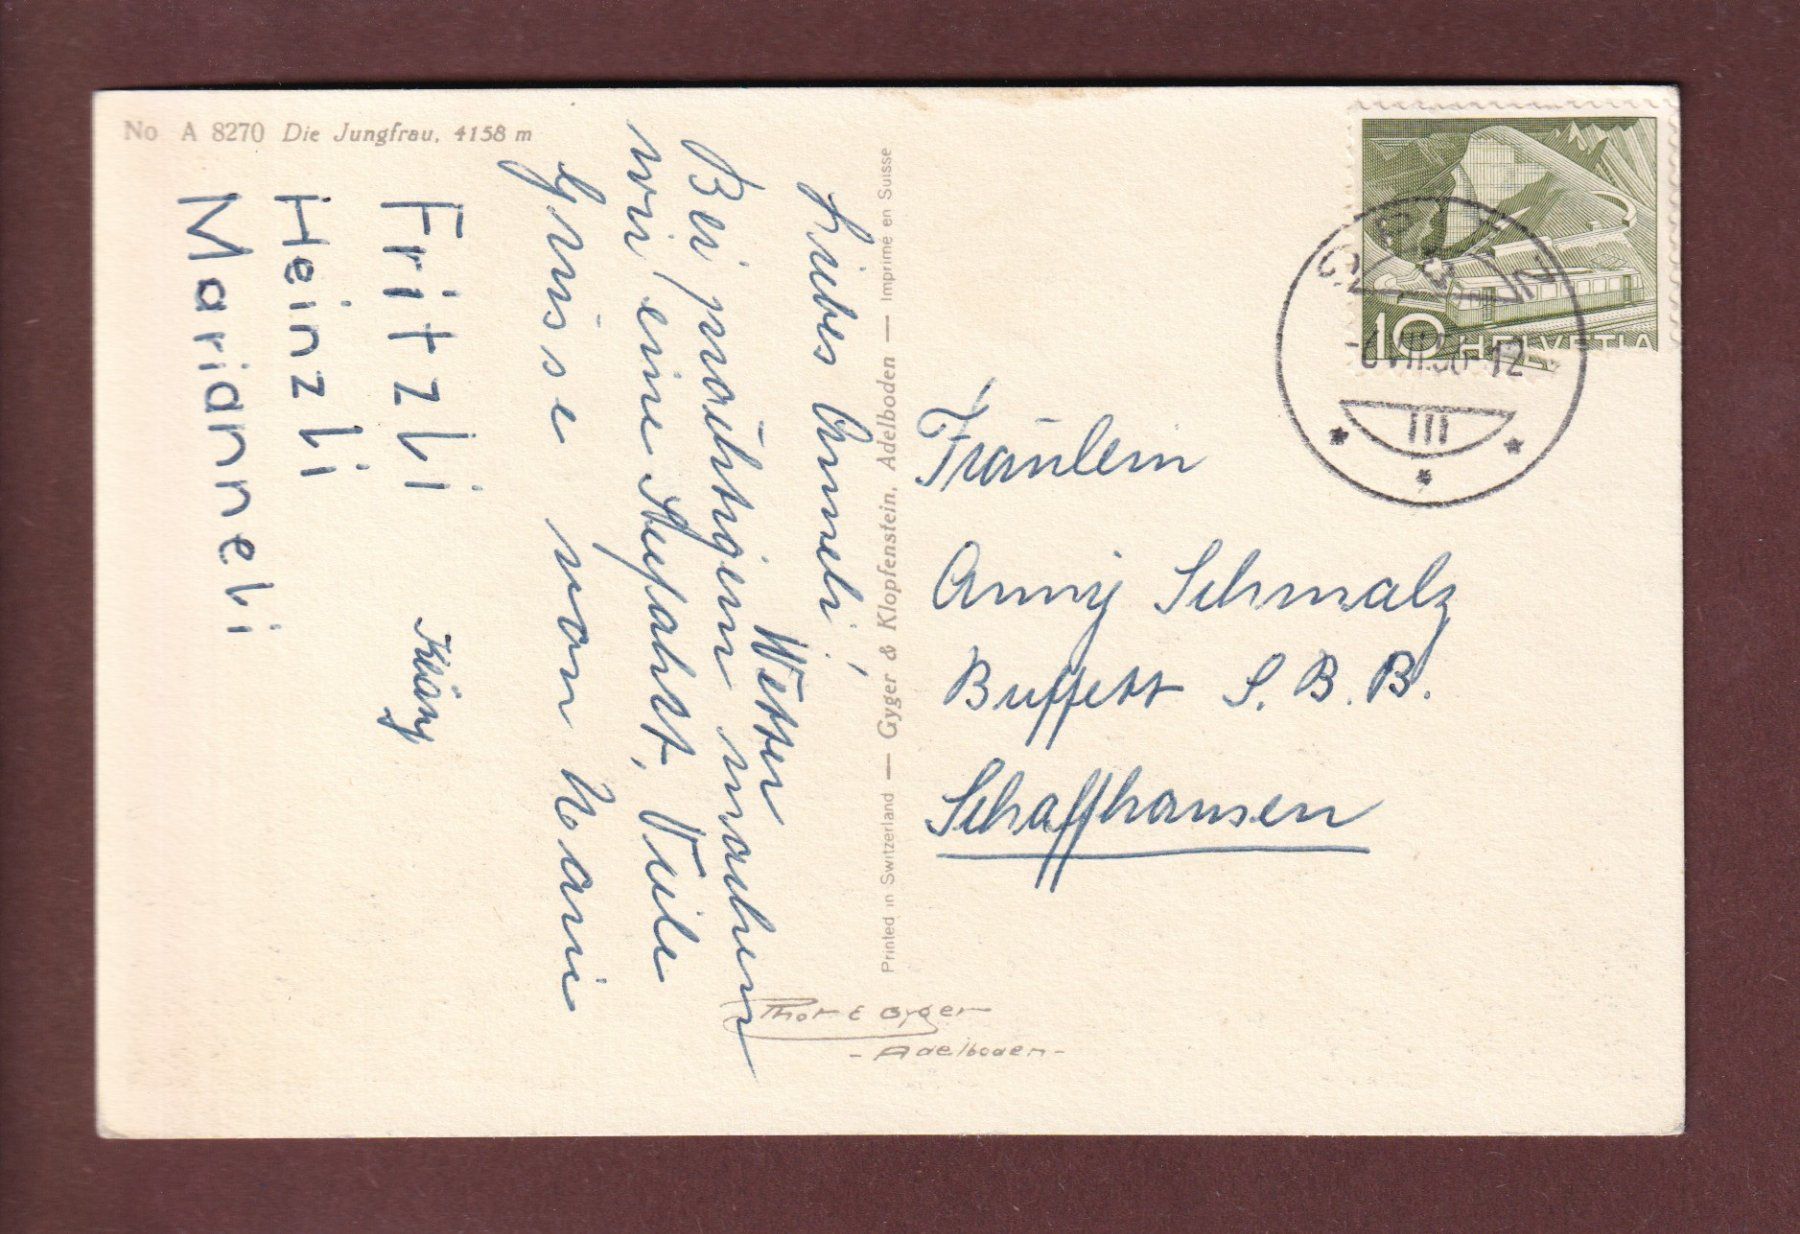 No A 8270 Die Jungfrau, 4158 m
Liebes Anneli,
Bei prächtigem Wetter
machen
wir eine Aufahrt, Viele
Grüsse von Nani
Kläry
Fritzli
Heinzli
Marianneli
Printed in Switzerland — Gyger & Klopfenstein, Adelboden — Imprimé en Suisse
Phot E Gyger
- Adelboden -
10 HELVETIA
Fräulein
Anny Schmalz
Buffett S.B.B.
Schaffhausen